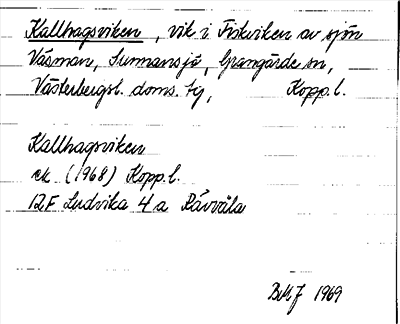 Kallhagsviken, vik i Fiskviken av sjön
Väsman, Sunnansjö, Grangärde sn,
Västerbergsl. doms. tg, Kopp. l.
Kallhagsviken
ek. (1968) Kopp. l.
12F Ludvika 4 a Rävvåla
1969